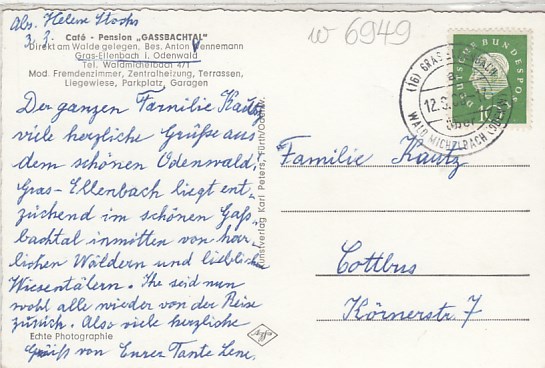 Abs. Helene
z. Z.
Café - Pension „GASSBACHTAL"
Direkt am Walde gelegen, Bes. Anton Wennemann
Gras-Ellenbach i. Odenwald
Tel. Waldmichelbach 471
Mod. Fremdenzimmer, Zentralheizung, Terrassen,
Liegewiese, Parkplatz, Garagen
w 6949
DEUTSCHE BUNDESPOST
10
(16) GRAS-
WALD MICHELBACH
Der ganzen Familie Kautz
viele herzliche Grüße aus
dem schönen Odenwald,
Gras-Ellenbach liegt ent-
zückend im schönen Gaß-
bachtal inmitten von herr-
lichen Wäldern und lieblichen
Wiesentälern. Ihr seid nun
wohl alle wieder von der Reise
zurück. Also viele herzliche
Grüße von Eurer Tante Lene.
Echte Photographie
Kunstverlag Karl Peters, Fürth/Odenw.
Familie Kautz
Cottbus
Körnerstr. 7